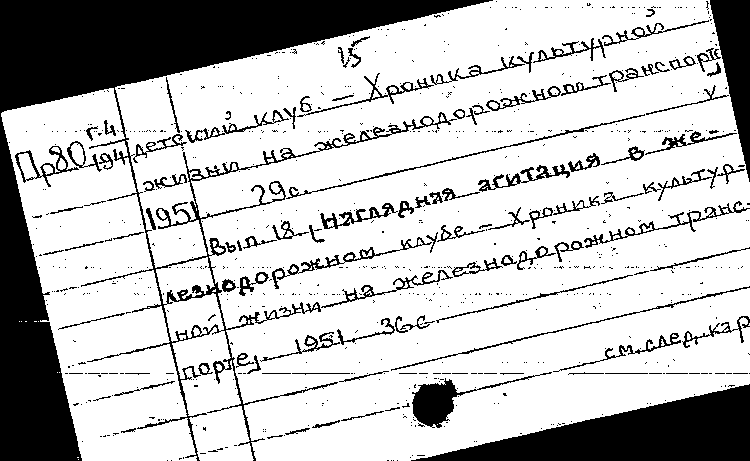 15
Пр80 г.4/194 детский клуб. — Хроника культурной
жизни на железнодорожном транспорте]
1951. 29с. V
Вып. 18. [Наглядная агитация в же-
лезнодорожном клубе. — Хроника культур-
ной жизни на железнодорожном транс-
порте]. 1951. 36с.
см. след. кар